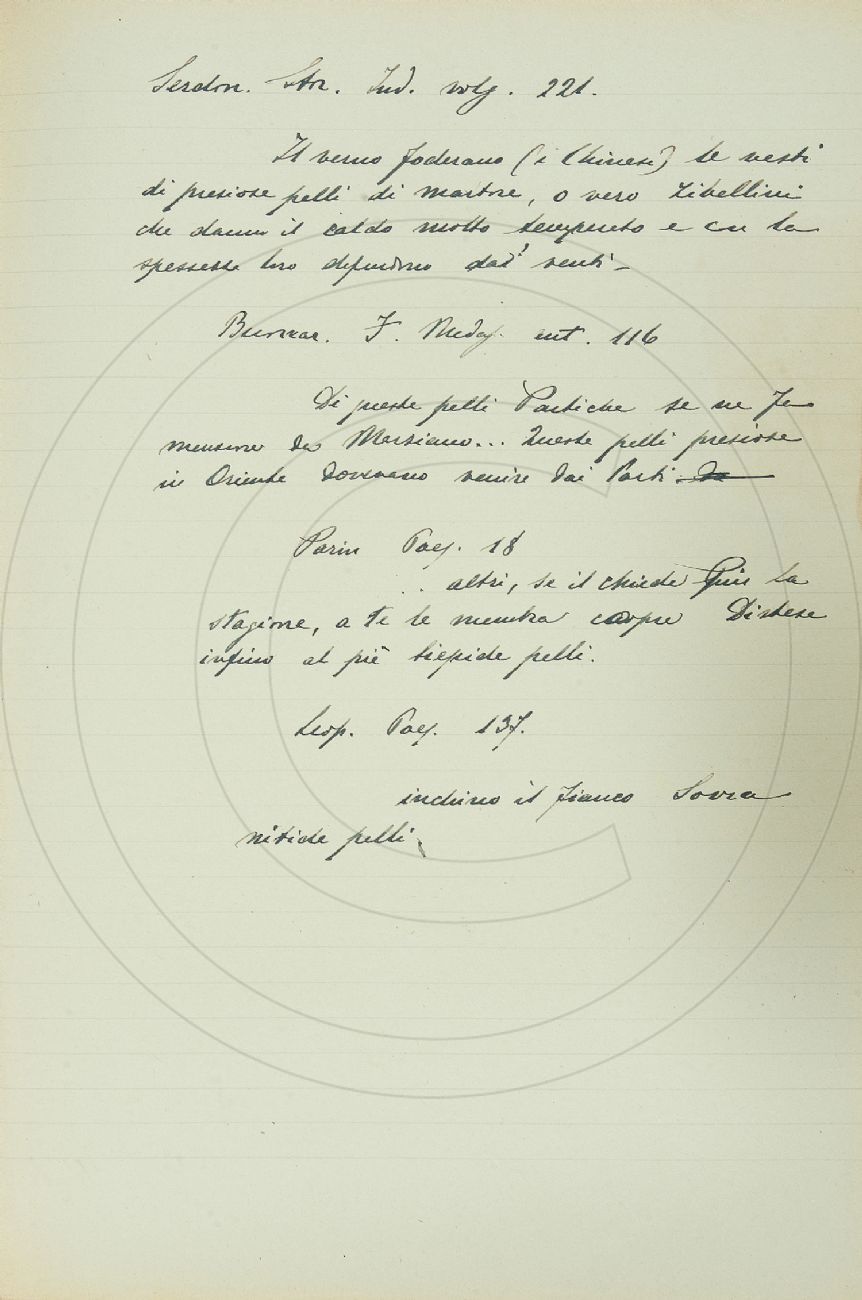 Serdon. Stor. Ind. volg. 221.
Il verno foderano (i Chinesi) le vesti
di preziose pelli di martore, o vero Zibellini
che danno il caldo molto temperato e con la
spessezza loro difendono dai venti –
Buonar. F. Medagl. ant. 116
Di queste pelli Partiche se ne fa
menzione da Marziano... Queste pelli preziose
in Oriente dovevano venire dai Parti.
Parin Poes. 18
.. altri, se il chiede Più la
stagione, a te le membra copre Distese
infino al piè tiepide pelli.
Leop. Poes. 137.
inchino il fianco Sovra
nitide pelli